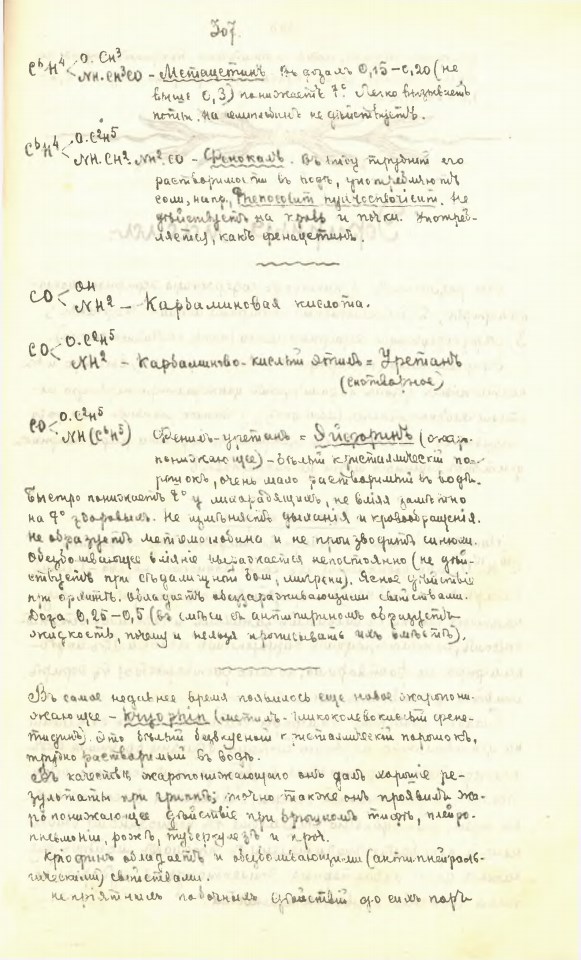 307.
C⁶H⁴ < O. CH³
NH. CH³CO – Метацетинъ. Въ дозахъ 0,15–0,20 (не
выше 0,3) понижаетъ t°. Легко вызываетъ
поты. на не дѣйствуетъ.
C⁶H⁴ < O. C²H⁵
NH. CH². NH². CO – Фенокалъ. Въ виду трудной его
растворимости въ водѣ, употребляютъ
соли, напр. Phenocolum hydrochloricum. Не
дѣйствуетъ на кровь и почки. Употреб-
ляется, какъ фенацетинъ.
CO < OH
NH² – Карбаминовая кислота.
CO < O. C²H⁵
NH² – Карбаминово-кислый этилъ = Уретанъ
(снотворное)
CO < O. C²H⁵
NH (C⁶H⁵) Фенилъ-уретанъ = Эйфоринъ (жаро-
понижающее) – бѣлый кристаллическій по-
рошокъ, очень мало растворимый въ водѣ.
Быстро понижаетъ t° у лихорадящихъ, не вліяя замѣтно
на t° здоровыхъ. Не измѣняетъ дыханія и кровообращенія.
Не образуетъ метгемоглобина и не производитъ синюхи.
Обезболивающее вліяніе непостоянно (не дѣй-
ствуетъ при сѣдалищной боли, мигрени). Ясное дѣйствіе
при орхитѣ. Обладаетъ обеззараживающими свойствами.
Доза 0,25–0,5 (въ смѣси съ антипириномъ образуетъ
жидкость, почему и нельзя прописывать ихъ вмѣстѣ).
Въ самое недавнее время появилось еще новое жаропони-
жающее – Kryophin (метилъ-гликоколевокислый фене-
тидинъ). Это бѣлый безвкусный кристаллическій порошокъ,
трудно растворимый въ водѣ.
Въ качествѣ жаропонижающаго онъ далъ хорошіе ре-
зультаты при гриппѣ; точно также онъ проявилъ жа-
ропонижающее дѣйствіе при брюшномъ тифѣ, плевро-
пнеймоніи, рожѣ, туберкулезѣ и проч.
Кріофинъ обладаетъ и обезболивающими (антиневраль-
гическими) свойствами.
Непріятныхъ побочныхъ дѣйствій до сихъ поръ